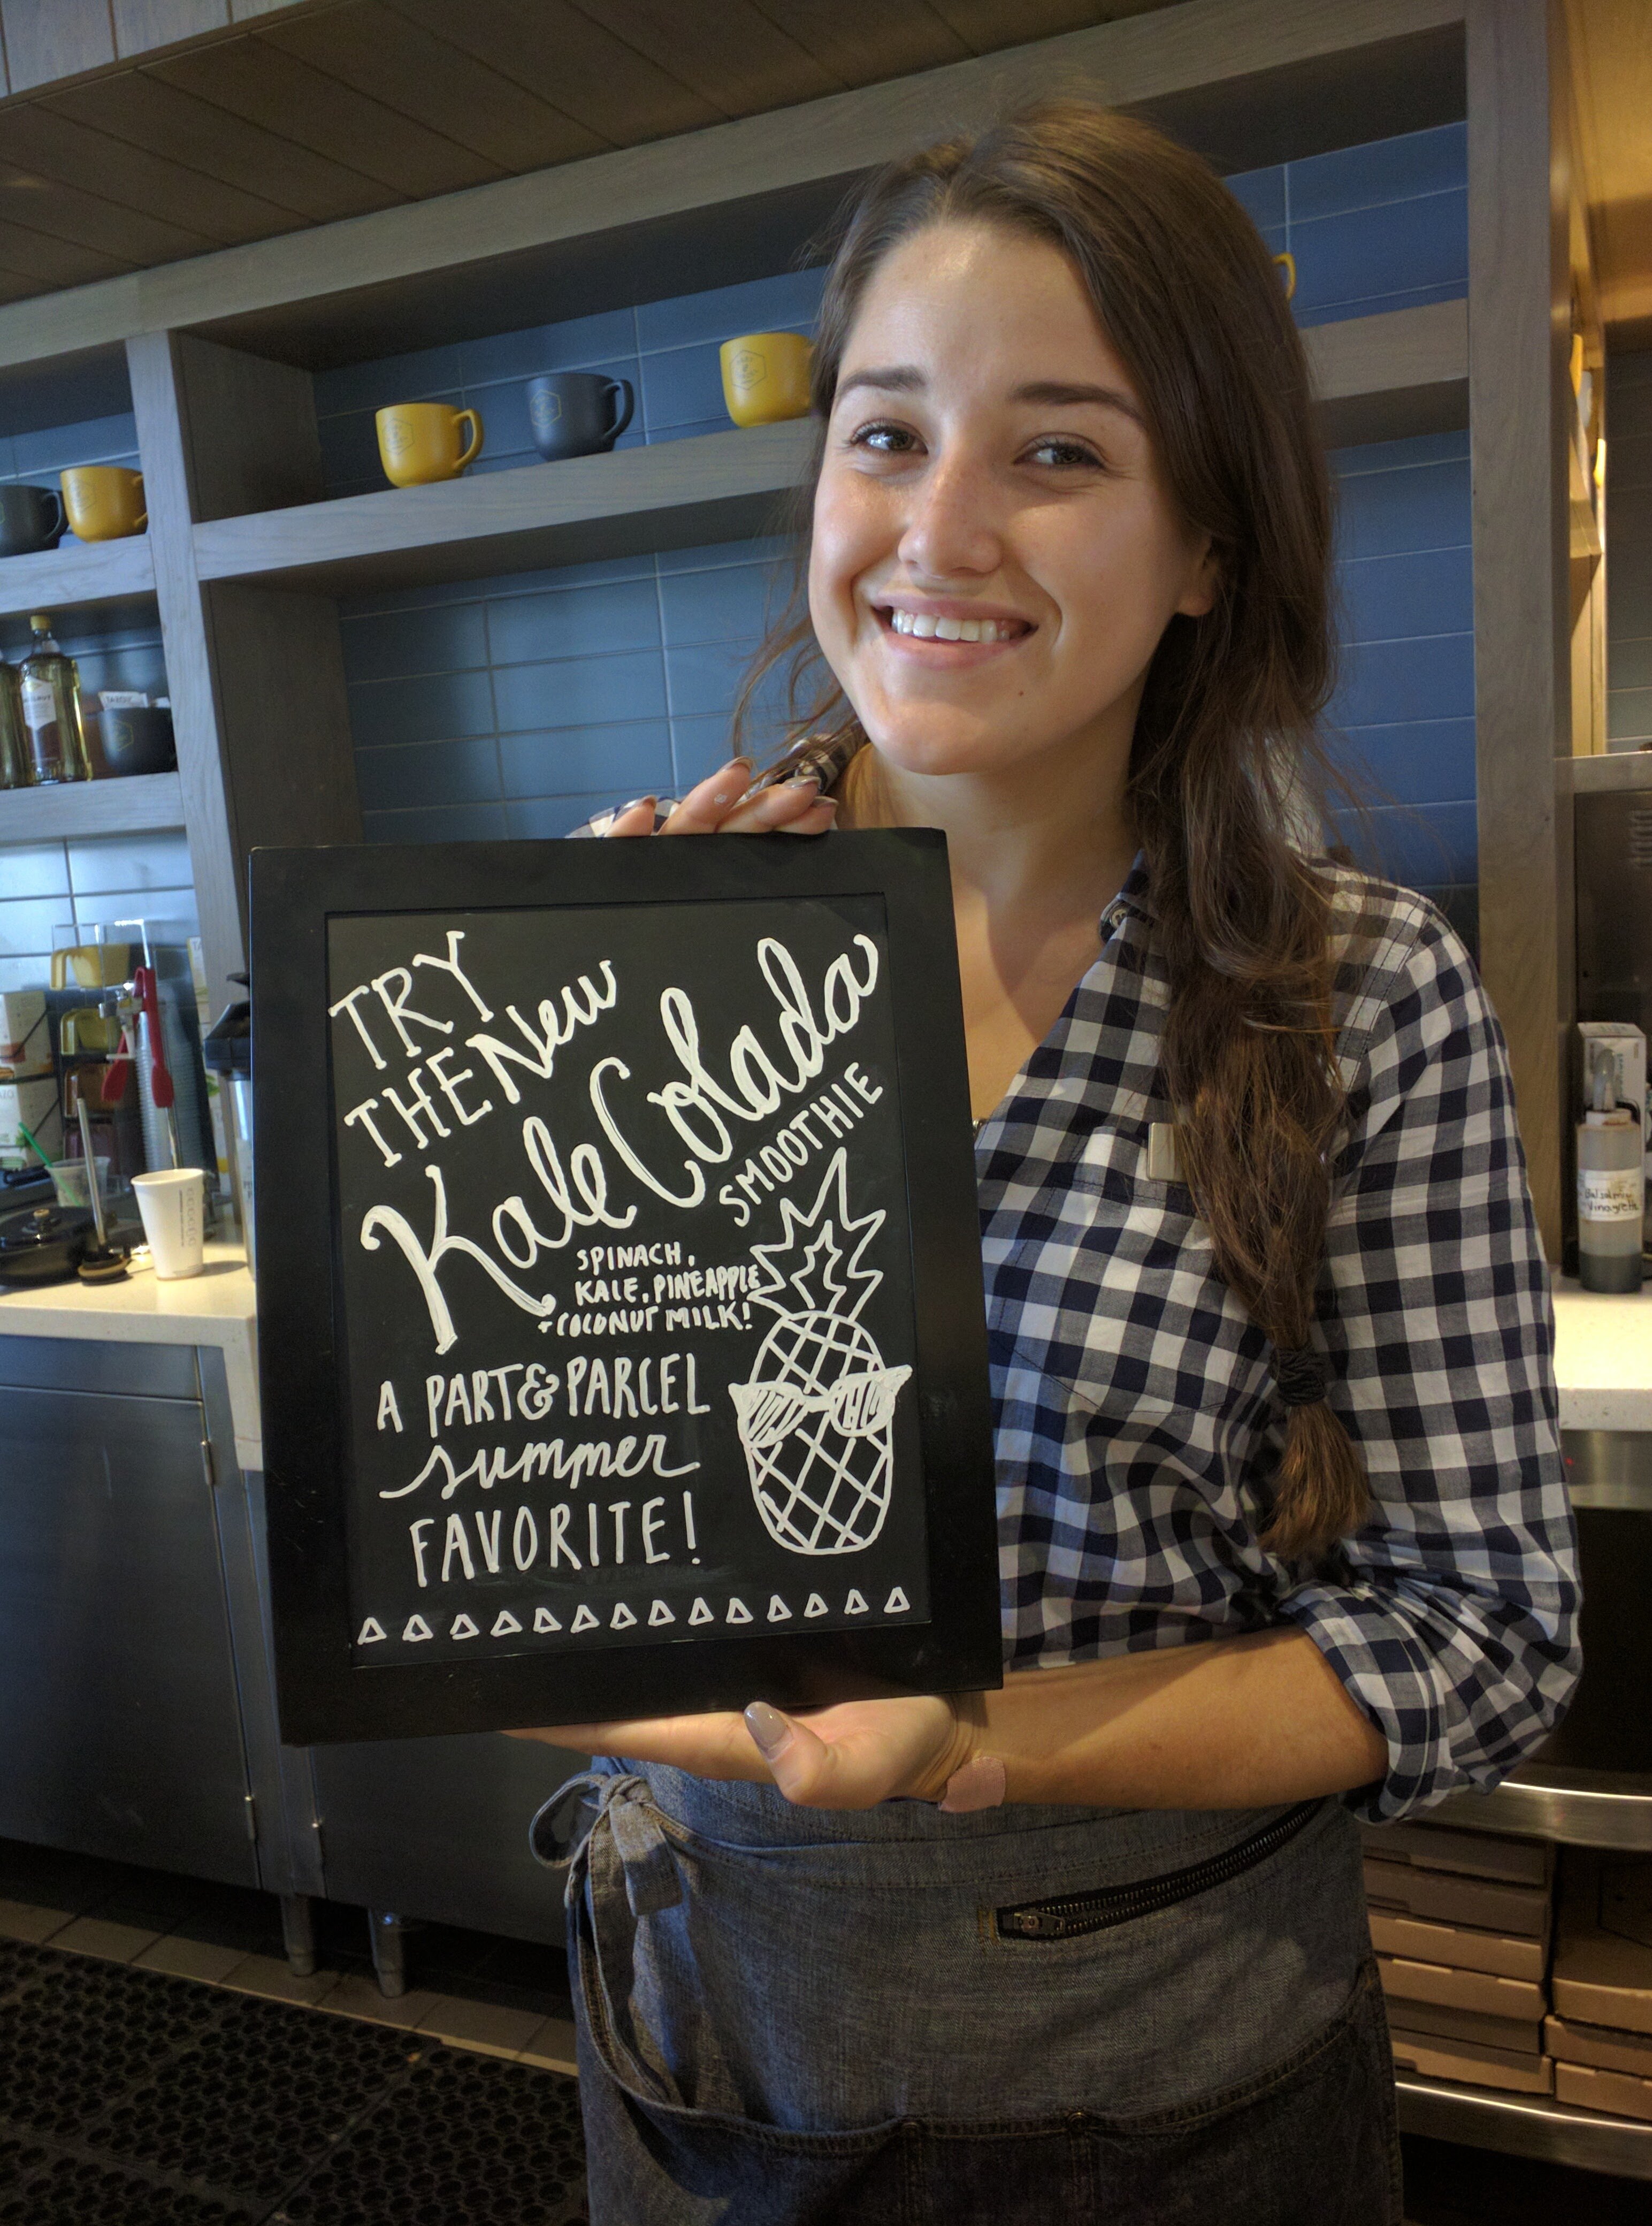 TRY
THE New
Kale Colada
SMOOTHIE
SPINACH,
KALE, PINEAPPLE
+ COCONUT MILK!
A PART & PARCEL
summer
FAVORITE!
Balsamic
Vinagrette